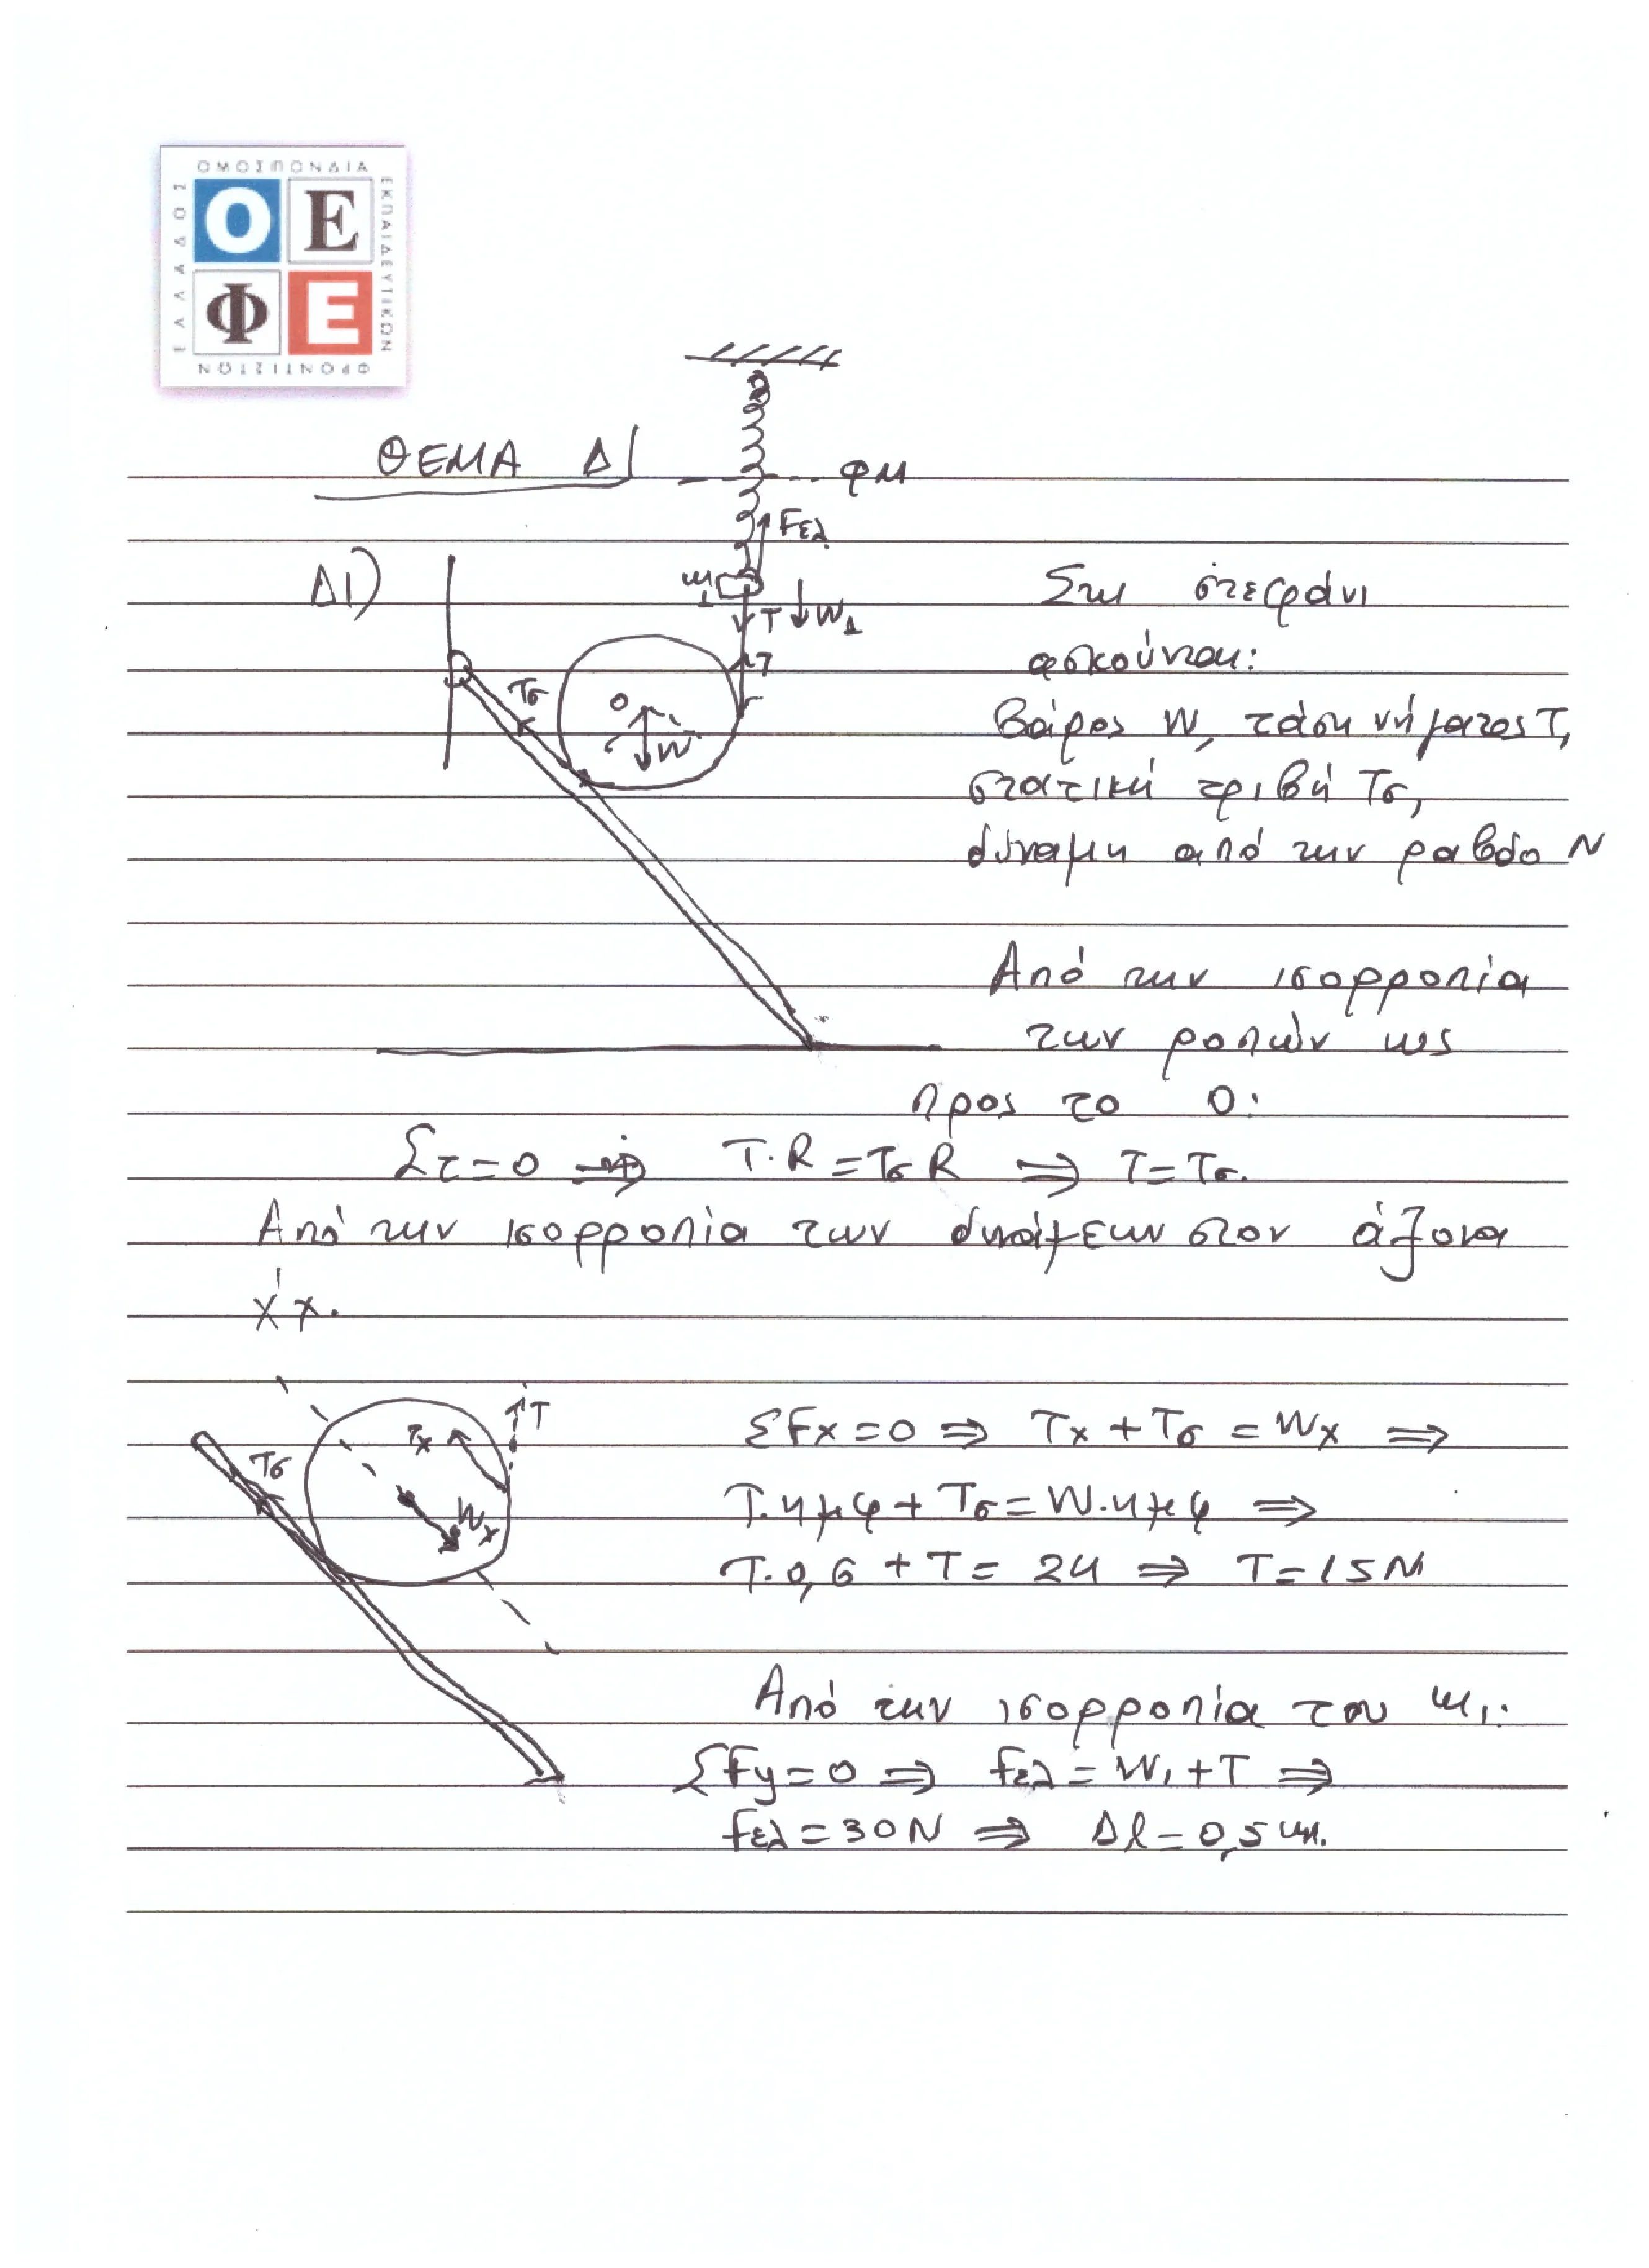 ΟΜΟΣΠΟΝΔΙΑ
ΕΚΠΑΙΔΕΥΤΙΚΩΝ
ΦΡΟΝΤΙΣΤΩΝ
ΕΛΛΑΔΟΣ
Ο Ε
Φ Ε
ΘΕΜΑ Δ
ΦΜ
Fελ
Δ1)
m1
T W1
T
Τσ
Ο
W
Στη στεφάνι
ασκούνται:
Βάρος W, τάση νήματος T,
στατική τριβή Τσ,
δύναμη από την ραβδο N
Από την ισορροπία
των ροπών ως
προς το Ο:
Στ=0 ⇒ T·R=Τσ R ⇒ T=Τσ.
Από την ισορροπία των δυνάμεων στον άξονα
x'x.
T
Tx
Τσ
Wx
ΣFx=0 ⇒ Tx+Τσ=Wx ⇒
T.ημφ+Τσ=W.ημφ ⇒
T.0,6+T=24 ⇒ T=15N
Από την ισορροπία του m1:
ΣFy=0 ⇒ Fελ=W1+T ⇒
Fελ=30N ⇒ Δl=0,5m.